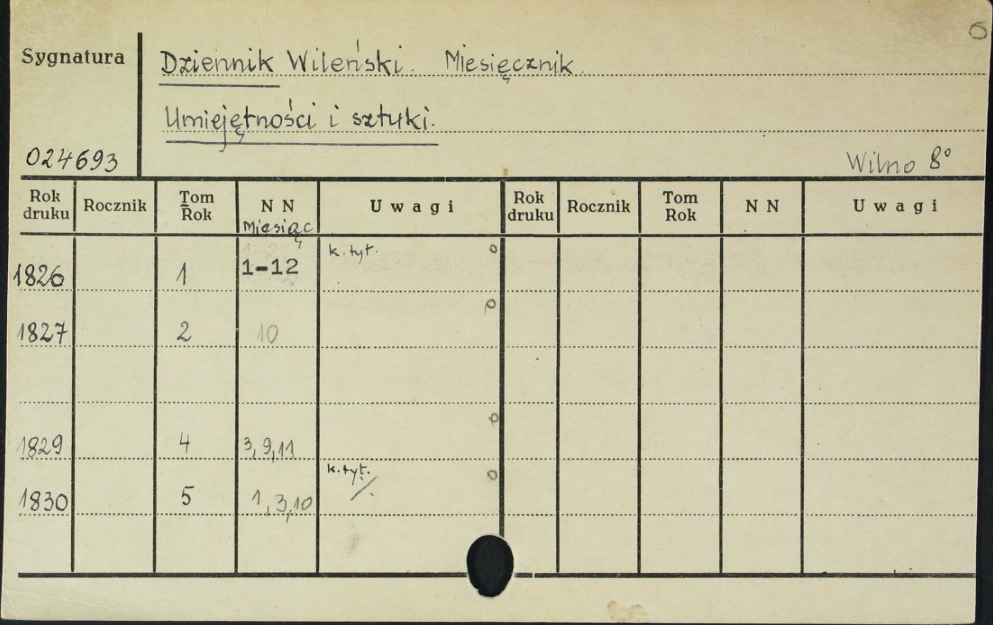 Sygnatura Dziennik Wileński. Miesięcznik.
Umiejętności i sztuki.
024693 Wilno 8°
Rok druku Rocznik Tom Rok NN Miesiąc Uwagi Rok druku Rocznik Tom Rok NN Uwagi
1826 1 1-12 k. tyt.
1827 2 10
1829 4 3, 9, 11
1830 5 1, 3, 10 k. tyt.